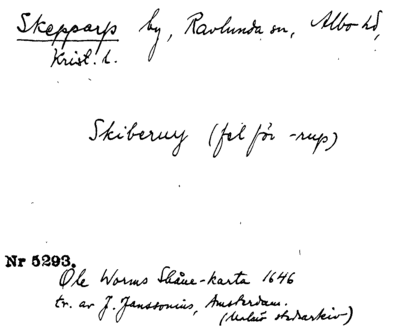 Skepparp by, Ravlunda sn, Albo hd,
Krist. l.
Skiberuy (fel för -rup)
Nr 5293.
Ole Worms Skåne-karta 1646
tr. av J. Janssonius, Amsterdam.
(Malmö stadsarkiv)